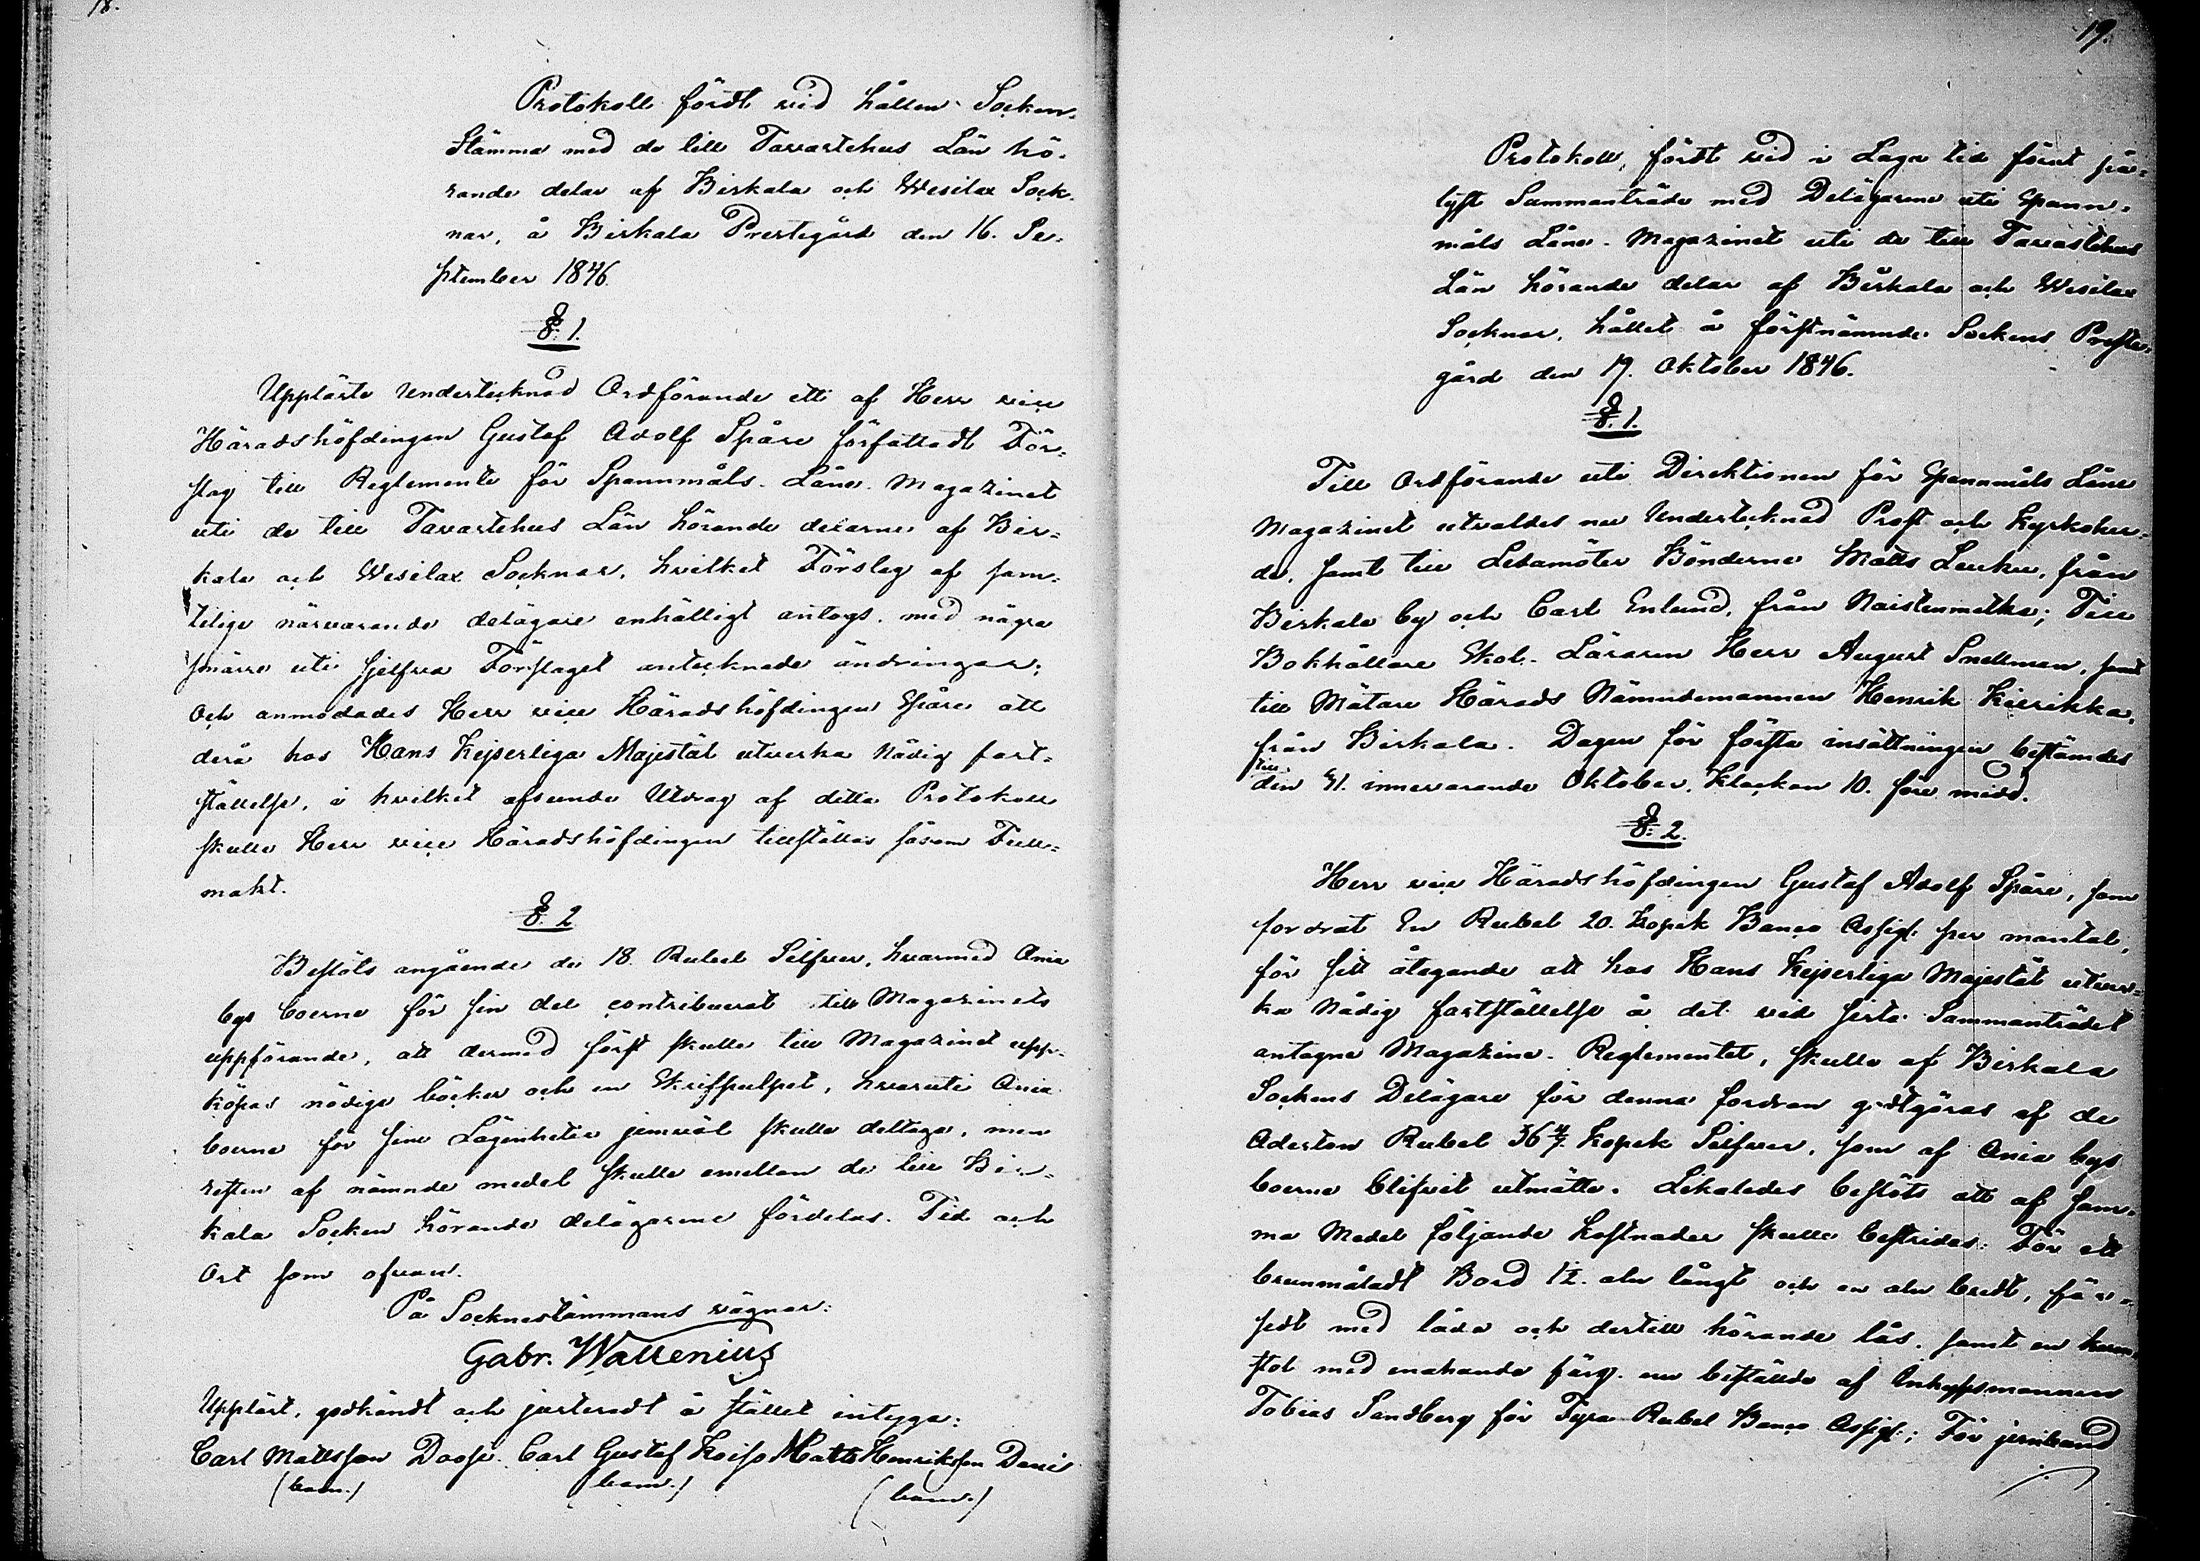 18.
Protokoll fördt vid hållen Socken-
Stämma med de till Tavastehus Län hö-
rande delar af Birkala och Wesilax Sock-
nar, å Birkala Prestegård den 16. Se-
ptember 1846.
§. 1.
Uppläste Undertecknad Ordförande ett af Herr vice
Häradshöfdingen Gustaf Adolf Spåre författadt För-
slag till Reglemente för Spannmåls-Låne-Magazinet
uti de till Tavastehus Län hörande delarne af Bir-
kala och Wesilax Socknar, hvilket Förslag af sam-
telige närvarande delägare enhälligt antogs, med några
smärre uti sjelfva Förslaget antecknade ändringar;
Och anmodades Herr vice Häradshöfdingen Spåre att
derå hos Hans Kejserliga Majestät utverka Nådig fast-
ställelse, i hvilket afseende Utdrag af detta Protokoll
skulle Herr vice Häradshöfdingen tillställas såsom Full-
makt.
§. 2
Beslöts angående de 18. Rubel Silfver, hvarmed Ania
bys boerne för sin del contribuerat till Magazinets
uppförande, att dermed först skulle till Magazinet upp-
köpas nödige böcker och en Skrifpulpet, hvaruti Ania
boerne för sine Lägenheter jemväl skulle deltaga, men
resten af nämnde medel skulle emellan de till Bir-
kala Socken hörande delägarene fördelas. Tid och
Ort som ofvan.
På Socknestämmans vägnar:
Gabr. Wallenius
Uppläst, godkändt och justeradt å stället intyga:
Carl Mattsson Daosi Carl Gustaf Koiso Matts Henriksson Dani
(bom.) (bom.) (bom.)
19.
Protokoll, fördt vid i Laga tid förut på-
lyst Sammanträde med Delägarene uti Spann-
måls Låne-Magazinet uti de till Tavastehus
Län hörande delar af Birkala och Wesilax
Socknar, hållet å förstnämnde Sockens Preste-
gård den 19. Oktober 1846.
§. 1.
Till Ordförande uti Direktionen för Spannmåls Låne
Magazinet utvaldes nu Undertecknad Prost och Kyrkoher-
de, samt till Ledamöter Bönderne Matts Leuku, från
Birkala by och Carl Enlund, från Naistenmatka; Till
Bokhållare Skol-Läraren Herr August Snellman, samt
till Mätare Härads Nämndemannen Henrik Kierikka,
från Birkala. Dagen för första insättningen bestämdes
till
den 31. innevarande Oktober, Klockan 10. före midd.
§. 2.
Herr vice Häradshöfdingen Gustaf Adolf Spåre, som
fordrat En Rubel 20. Kopek Banco Assign: per mantal,
för sitt åtagande att hos Hans Kejserliga Majestät utver-
ka Nådig fastställelse å det vid sista Sammanträdet
antagne Magazins-Reglementet, skulle af Birkala
Sockens Delägare för denna fordran godtgöras af de
Aderton Rubel 36 4/7 Kopek Silfver, som af Ania bys
boerne blifvit utmätte. Likaledes beslöts att af sam-
ma Medel följande kostnader skulle bestridas: För ett
brunmåladt Bord 1½. aln långt och en aln bredt, för-
sedt med låda och dertill hörande lås, samt en karm-
stol med enahanda färg, nu beställde af Inhyses mannen
Tobias Sandberg för Fyra Rubel Banco Assign:; För jernband